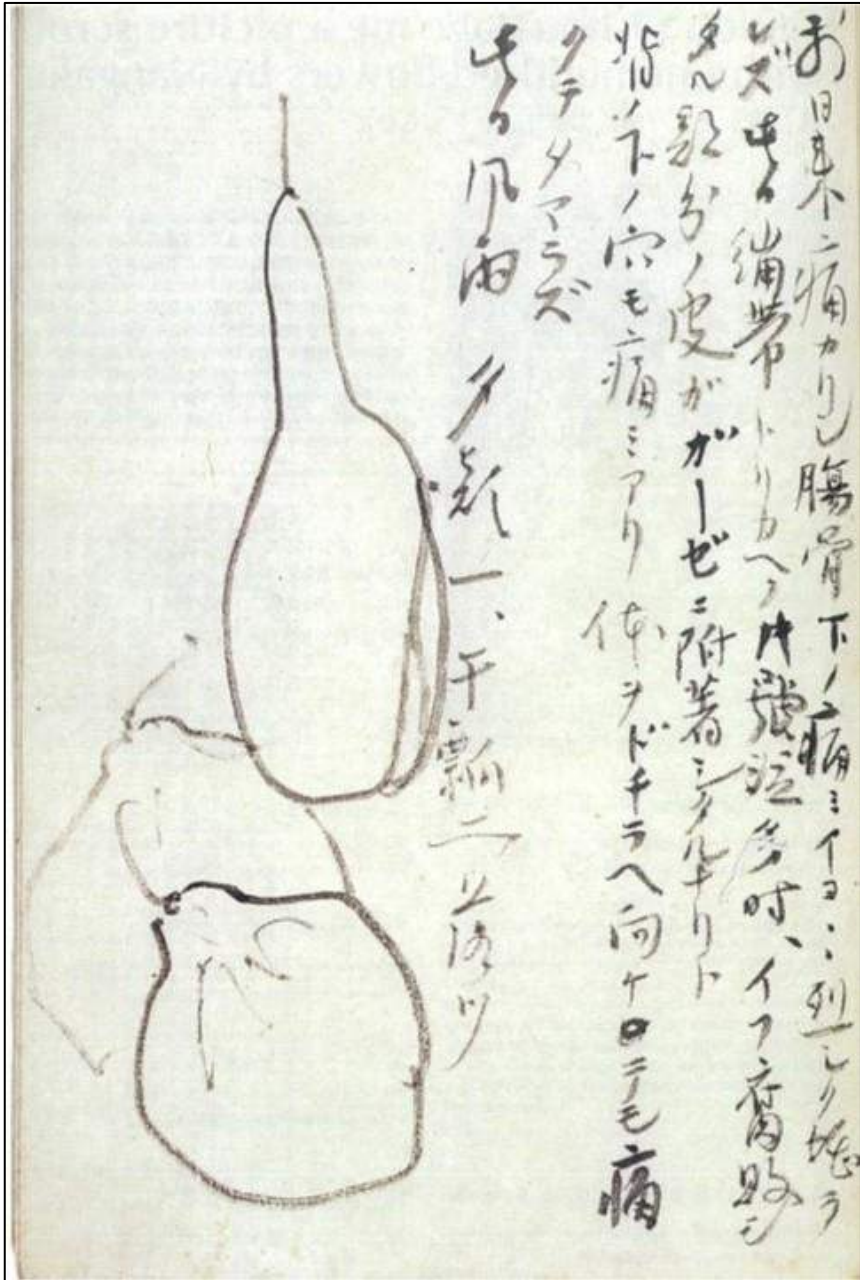 前日来痛カリシ腸骨下ノ痛ミイヨ〻烈シク堪ラ
レズ此日繃帯トリカヘノ片號泣多時、イフ腐敗シ
タル部分ノ皮ガガーゼニ附着シタルナリト
背ノ下ノ穴モ痛ミアリ 体ヲドチラヘ向ケテモ痛
クテタマラズ
此日風雨 夕顔一、干瓢二落ツ